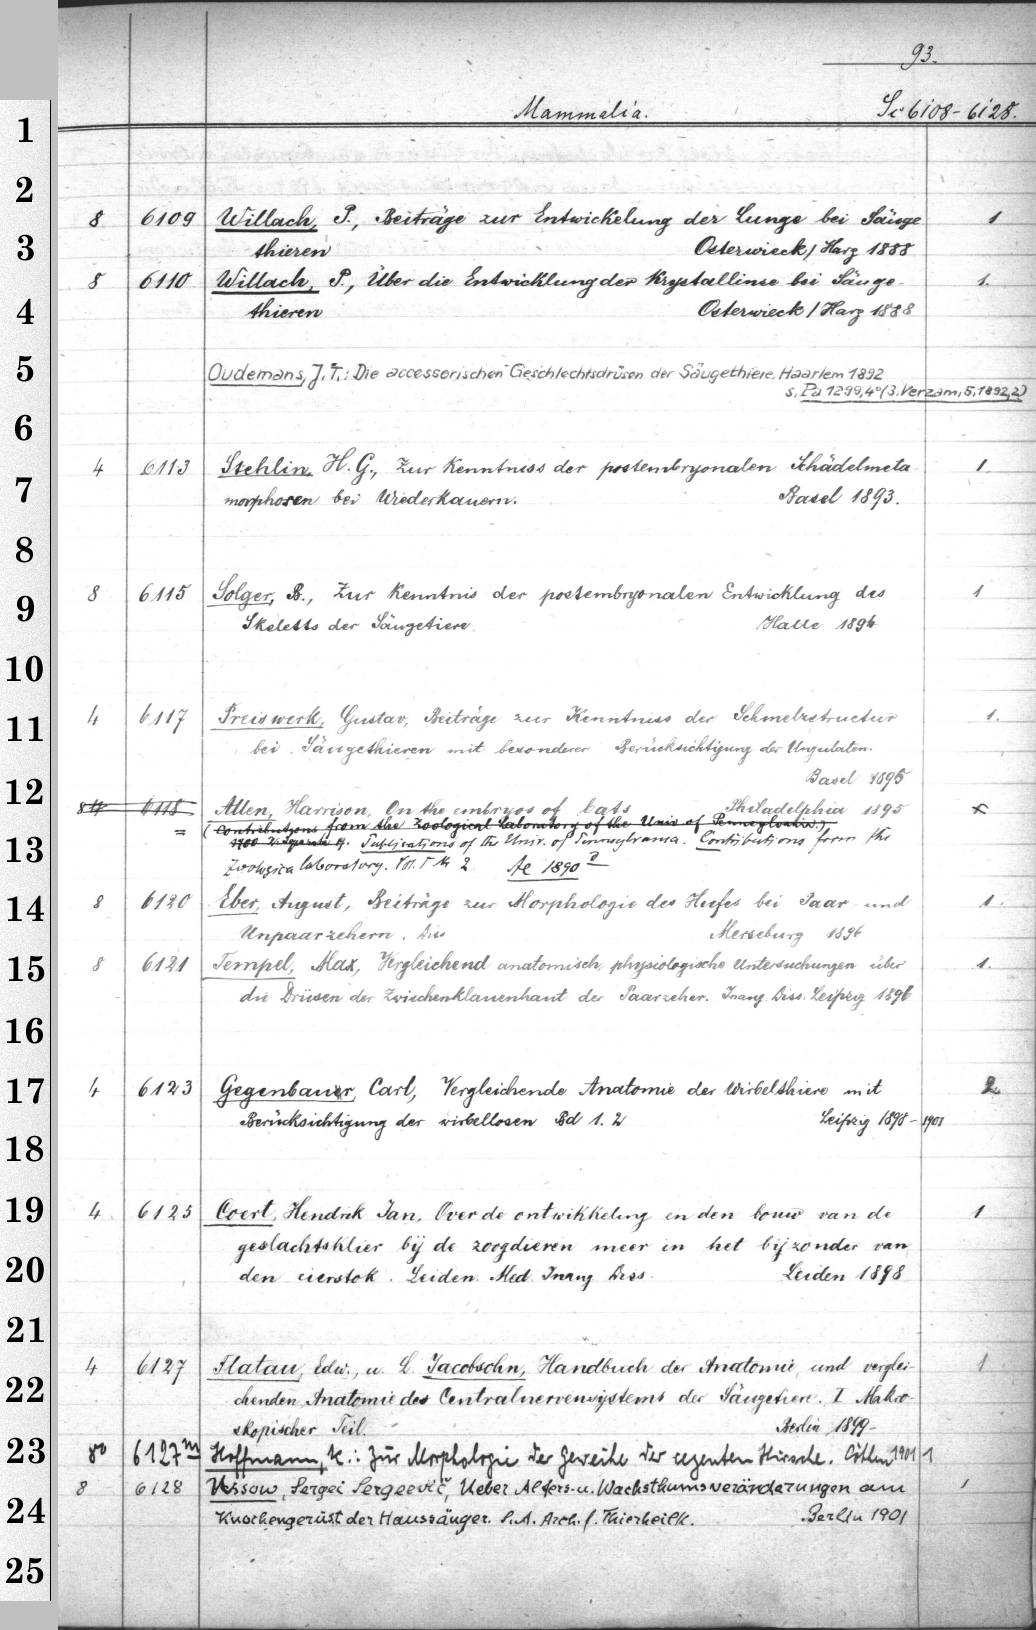 93.
Mammalia. Sc 6108-6128.
1
2
8 6109 Willach, P., Beiträge zur Entwickelung der Lunge bei Säuge 1
3
thieren Osterwieck/Harz 1888
8 6110 Willach, P., Über die Entwicklung der Krystallinse bei Säuge- 1.
4
thieren Osterwieck/Harz 1888
5
Oudemans, J. T.: Die accessorischen Geschlechtsdrüsen der Säugethiere. Haarlem 1892
s. Pa 1299,4° (3. Verzam, 5, 1892,2)
6
4 6113 Stehlin, H. G., Zur Kenntniss der postembryonalen Schädelmeta- 1
7
morphosen bei Wiederkauern. Basel 1893.
8
8 6115 Solger, B., Zur Kenntnis der postembryonalen Entwicklung des 1
9
Skeletts der Säugetiere. Halle 1894
10
4 6117 Preiswerk, Gustav, Beiträge zur Kenntniss der Schmelzstructur 1.
11
bei Säugethieren mit besonderer Berücksichtigung der Ungulaten.
Basel 1895
12
6118 Allen, Harrison, On the embryos of bats Philadelphia 1895
= (Contributions from the Zoological Laboratory of the Univ of Pennsylvania.)
13
Publications of the Univ. of Pennsylvania. Contributions from the
Zoologica laboratory. Vol. I Nr 2. Ae 1890
14
8 6120 Eber, August, Beiträge zur Morphologie des Hufes bei Paar- und 1.
Unpaarzehern. Diss Merseburg 1896
15
8 6121 Tempel, Max, Vergleichend anatomisch physiologische Untersuchungen über 1.
die Drüsen der Zwischenklauenhaut der Paarzeher. Inaug. Diss. Leipzig 1896
16
17
4 6123 Gegenbaur, Carl, Vergleichende Anatomie der Wirbelthiere mit 2
Berücksichtigung der wirbellosen Bd 1. 2 Leipzig 1898-1901
18
19
4 6125 Coert, Hendrik Jan, Over de ontwikkeling en den bouw van de 1
geslachtsklier bij de zoogdieren meer in het bijzonder van
20
den eierstok. Leiden. Med. Inaug Diss. Leiden 1898
21
4 6127 Flatau, Edw., u. L. Jacobsohn, Handbuch der Anatomie und verglei- 1
22
chenden Anatomie des Centralnervensystems der Säugetiere. I Makro-
skopischer Teil. Berlin 1899-
23
8° 6127m Hoffmann, K.: Zur Morphologie der Geweihe der rezenten Hirsche. Cöthen 1901 1
8 6128 Ussow, Sergei Sergeevič, Ueber Alters- u. Wachsthumsveränderungen am 1
24
Knochengerüst der Haussänger. S. A. Arch. f. Thierheilk. Berlin 1901
25